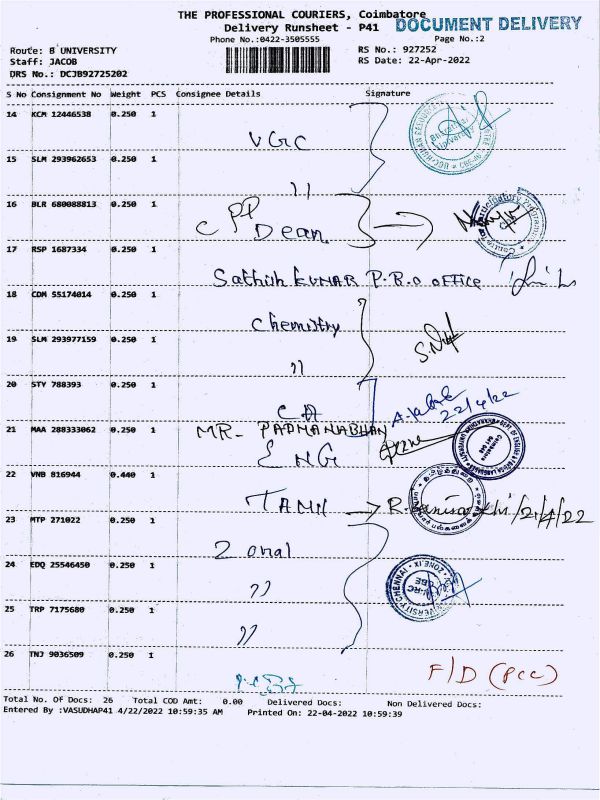 THE PROFESSIONAL COURIERS, Coimbatore
DOCUMENT DELIVERY
Delivery Runsheet - P41
Phone No.:0422-3505555 Page No.:2
Route: B UNIVERSITY RS No.: 927252
Staff: JACOB RS Date: 22-Apr-2022
DRS No.: DCJB92725202
S No Consignment No Weight PCS Consignee Details Signature
14 KCM 12446538 0.250 1
VGC
15 SLM 293962653 0.250 1
"
16 BLR 680088813 0.250 1
CPP Dean
17 RSP 1687334 0.250 1
Sathish KUMAR P.R.O OFFICE
18 CDM 55174014 0.250 1
Chemistry
19 SLM 293977159 0.250 1
"
20 STY 788393 0.250 1
22/4/22
21 MAA 288333062 0.250 1
MR- PADMANABHAN
ENG
22 VNB 816944 0.440 1
TAMIL 21/4/22
23 MTP 271022 0.250 1
Zonal
24 EDQ 25546450 0.250 1
"
25 TRP 7175680 0.250 1
"
26 TNJ 9036509 0.250 1
F/D (PCC)
Total No. Of Docs: 26 Total COD Amt: 0.00 Delivered Docs: Non Delivered Docs:
Entered By :VASUDHAP41 4/22/2022 10:59:35 AM Printed On: 22-04-2022 10:59:39